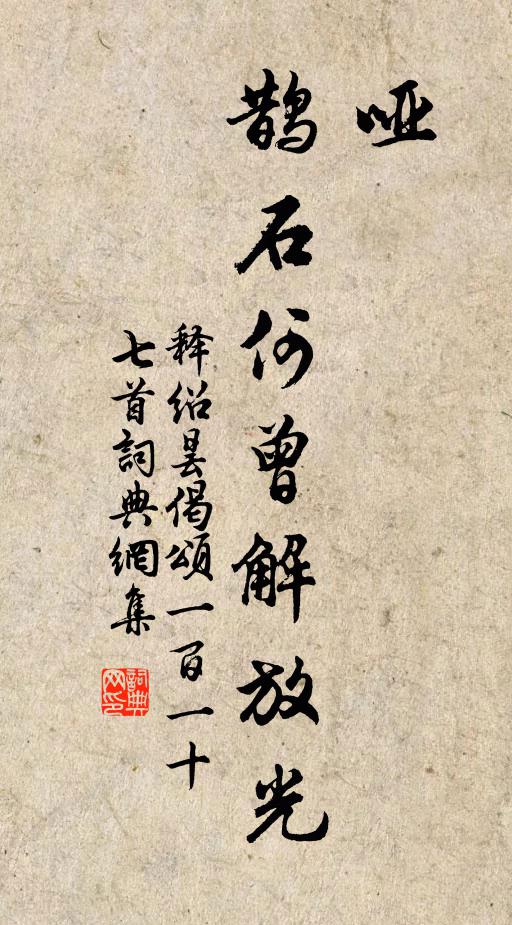 哑
鹊石何曾解放光
释绍昙偈颂一百一十
七首詞典網集
詞典网印